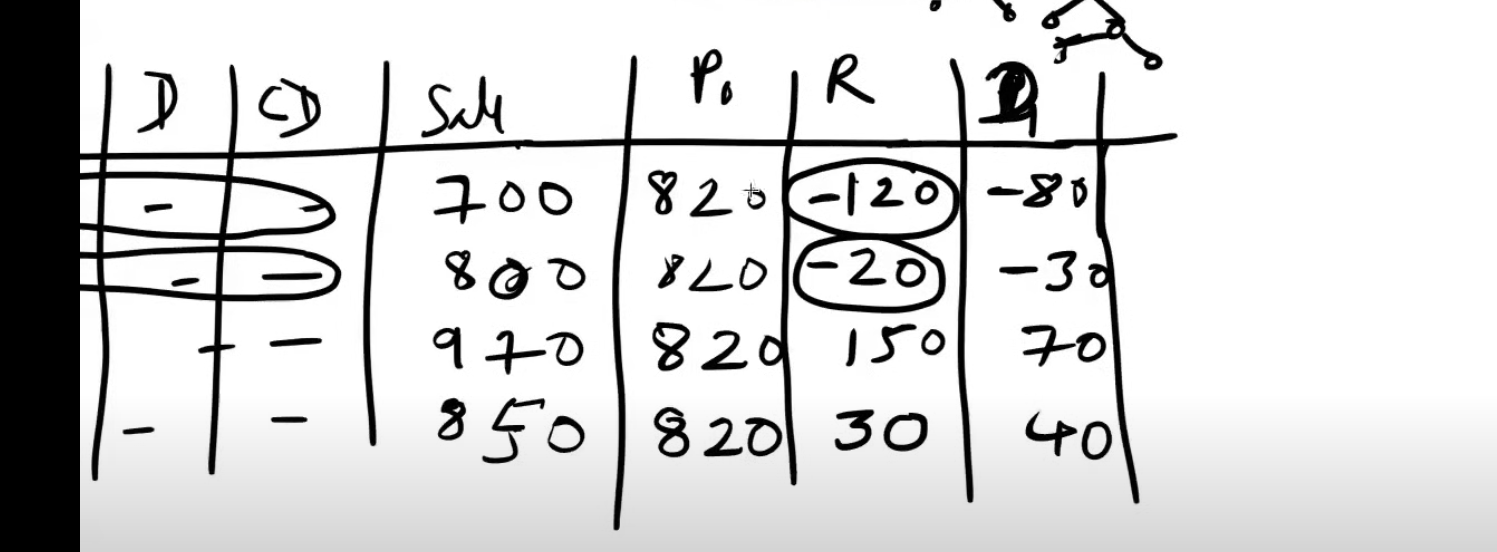 D CD Sale P₀ R D₁
- - 700 820 -120 -80
- - 800 820 -20 -30
- - 970 820 150 70
- - 850 820 30 40